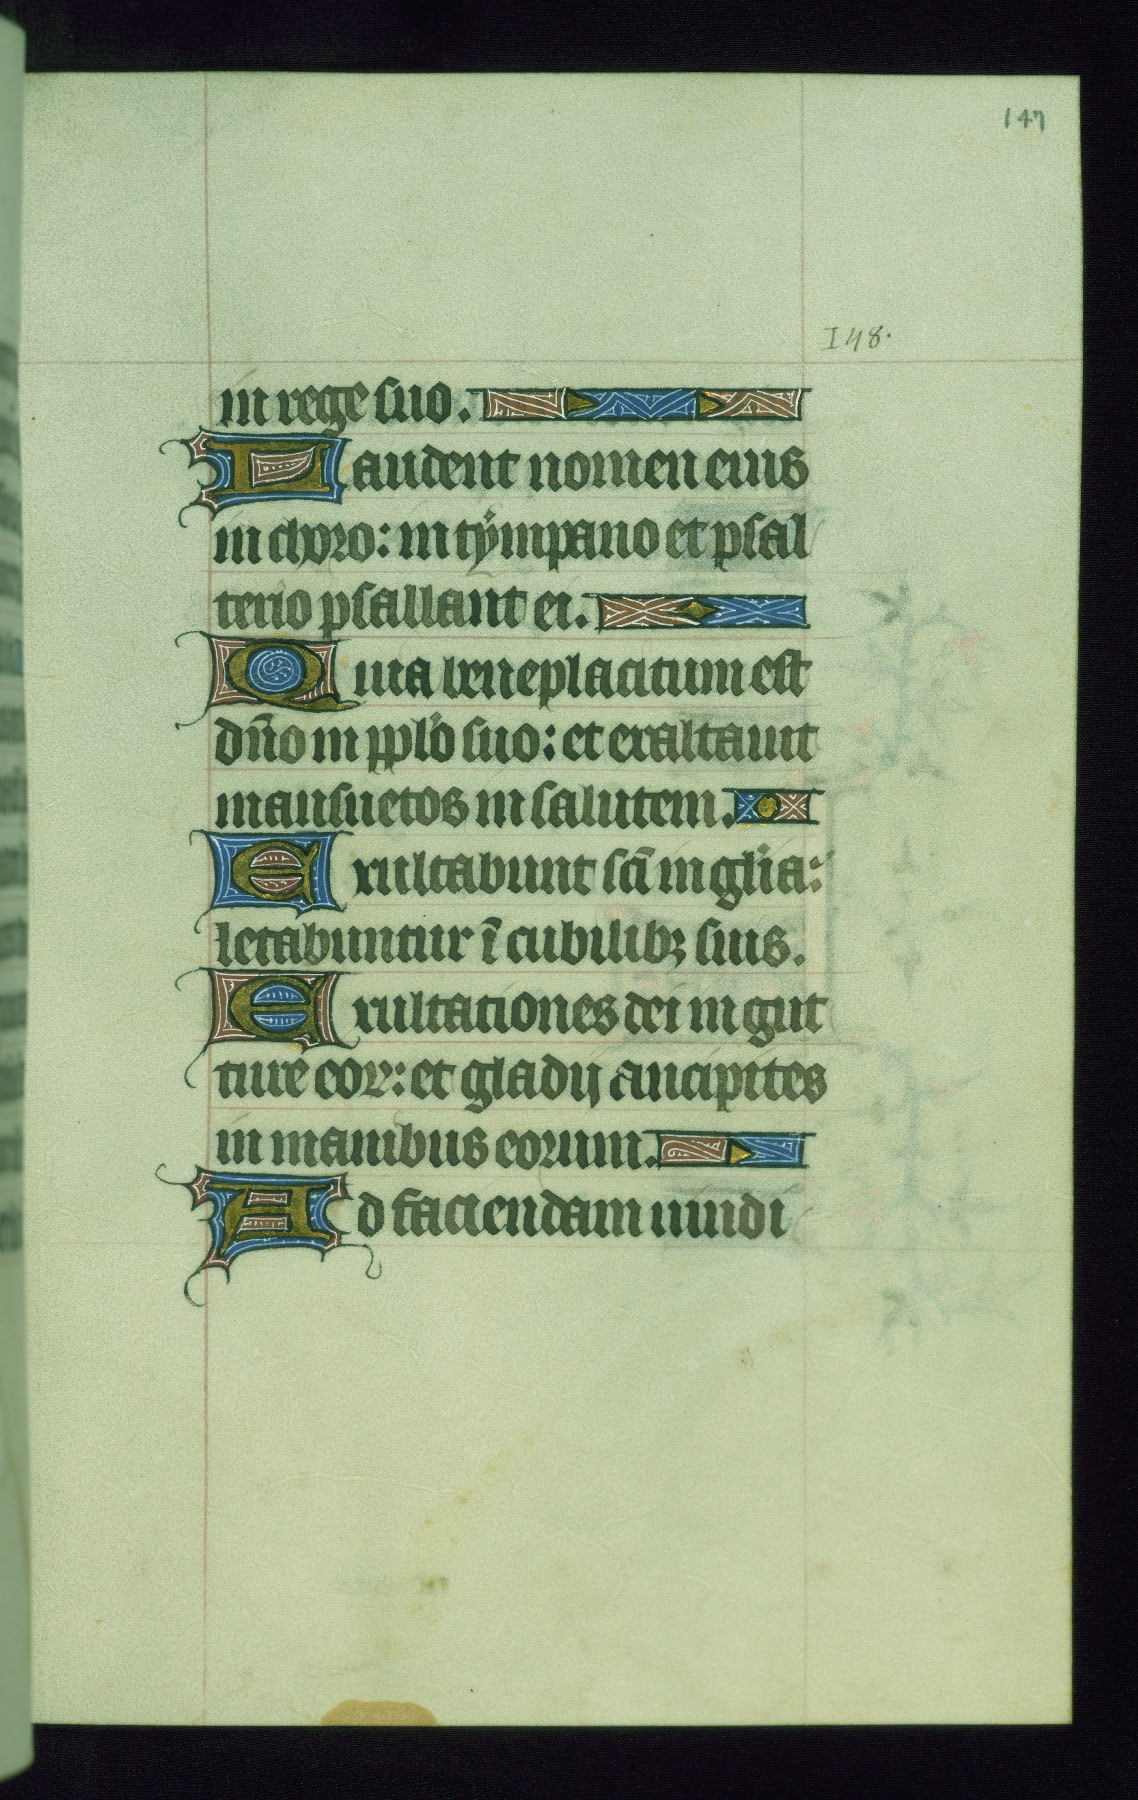 147
148.
in rege suo.
Laudent nomen eius
in choro: in tympano et psal
terio psallant ei.
Quia beneplacitum est
dn̄o in pplo suo: et exaltauit
mansuetos in salutem.
Exultabunt scī in glīa:
letabuntur ī cubilibꝫ suis.
Exultationes dei in gut
ture eoꝝ: et gladij ancipites
in manibus eorum.
Ad faciendam uindi